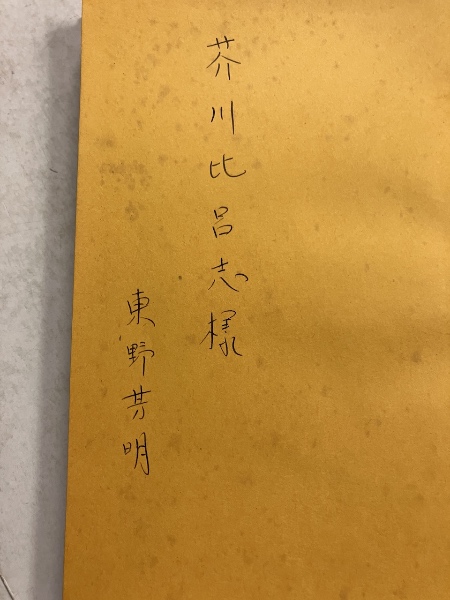 芥川比呂志様
東野芳明